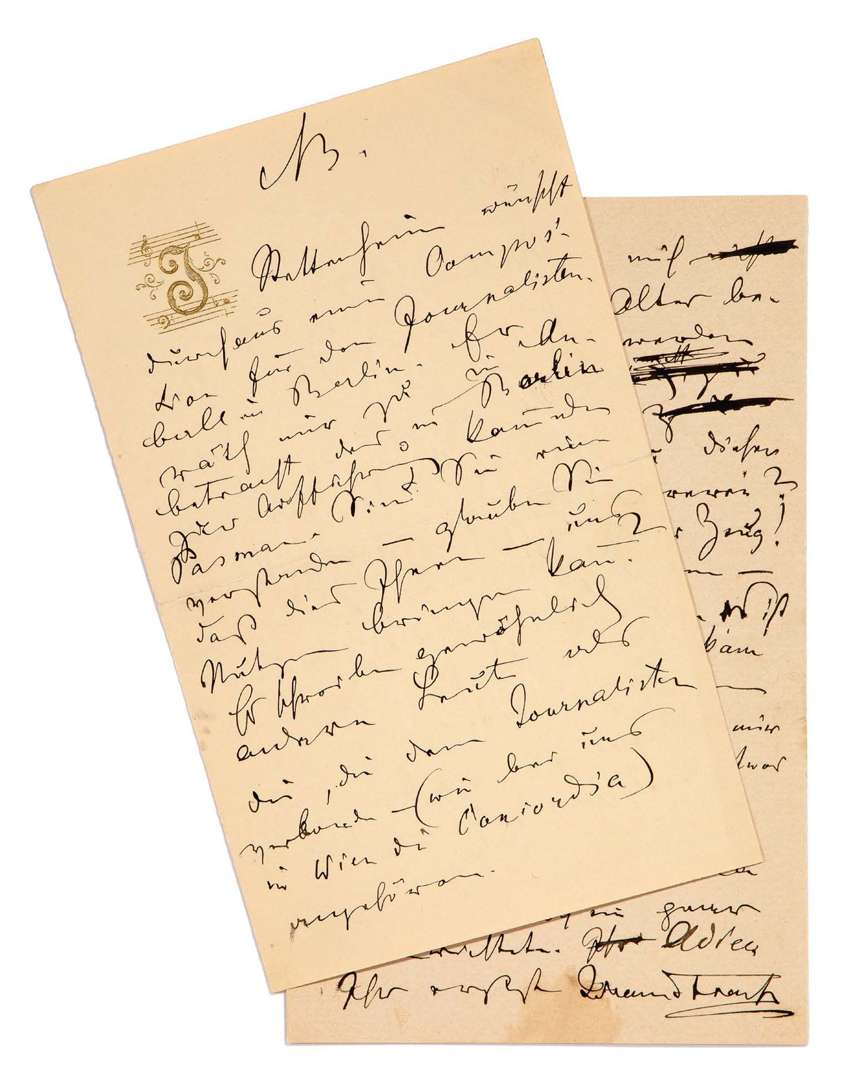 NB.
J
Stettenheim wünscht
durchaus eine Composi-
tion für den Journalisten-
ball in Berlin. Er
räth mir zu in An-
betracht der in Berlin
zur Aufführung kommenden
Pasman. Sind Sie ein-
verstanden – glauben Sie
daß dies Ihnen – uns
Nutzen bringen kann?
Es schreiben gewöhnlich
andere Leute als
die, die dem Journalisten
verbande – (wie bei uns
in Wien die Concordia)
angehören.
mich
Alter be-
werden
diesen
Zeug!
ist
kam
mir
ganz
Adieu
Ihr ergbst Johann Strauss